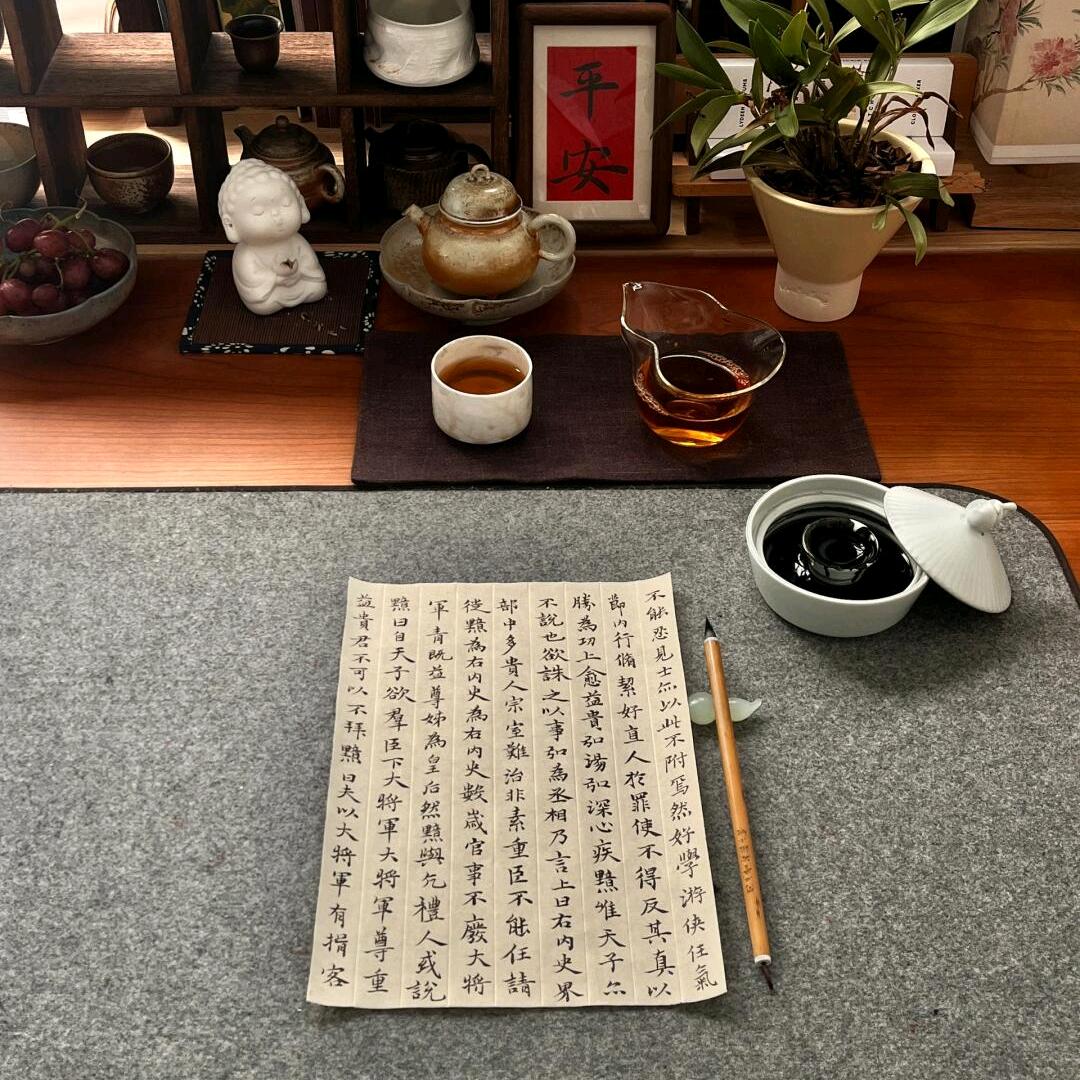 平安
不能忍見士亦以此不附焉然好學游俠任氣
節內行脩絜好直人於罪使不得反其真以
勝為功上愈益貴弘湯弘深心疾黯唯天子亦
不說也欲誅之以事弘為丞相乃言上曰右內史界
部中多貴人宗室難治非素重臣不能任請
徙黯為右內史為右內史數歲官事不廢大將
軍青既益尊姊為皇后然黯與亢禮人或說
黯曰自天子欲羣臣下大將軍大將軍尊重
益貴君不可以不拜黯曰夫以大將軍有揖客